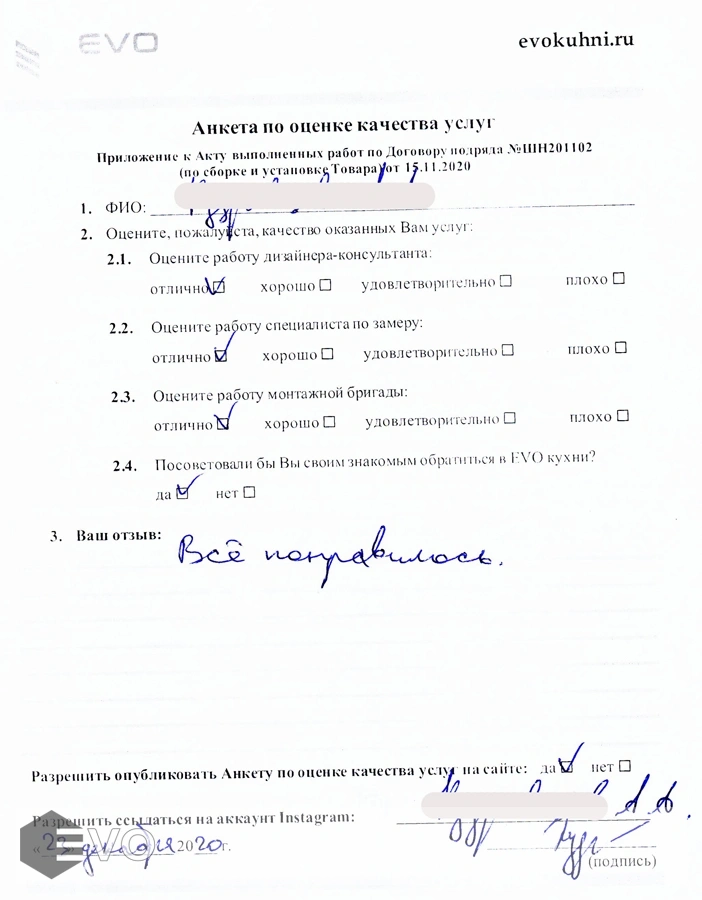 EVO
evokuhni.ru
Анкета по оценке качества услуг
Приложение к Акту выполненных работ по Договору подряда №ШН201102
(по сборке и установке Товара) от 15.11.2020
1. ФИО:
2. Оцените, пожалуйста, качество оказанных Вам услуг:
2.1. Оцените работу дизайнера-консультанта:
отлично ☑ хорошо ☐ удовлетворительно ☐ плохо ☐
2.2. Оцените работу специалиста по замеру:
отлично ☑ хорошо ☐ удовлетворительно ☐ плохо ☐
2.3. Оцените работу монтажной бригады:
отлично ☑ хорошо ☐ удовлетворительно ☐ плохо ☐
2.4. Посоветовали бы Вы своим знакомым обратиться в EVO кухни?
да ☑ нет ☐
3. Ваш отзыв: Всё понравилось.
Разрешить опубликовать Анкету по оценке качества услуг на сайте: да ☑ нет ☐
Разрешить ссылаться на аккаунт Instagram: А.А.
EVO
«23» декабря 2020 г.
(подпись)